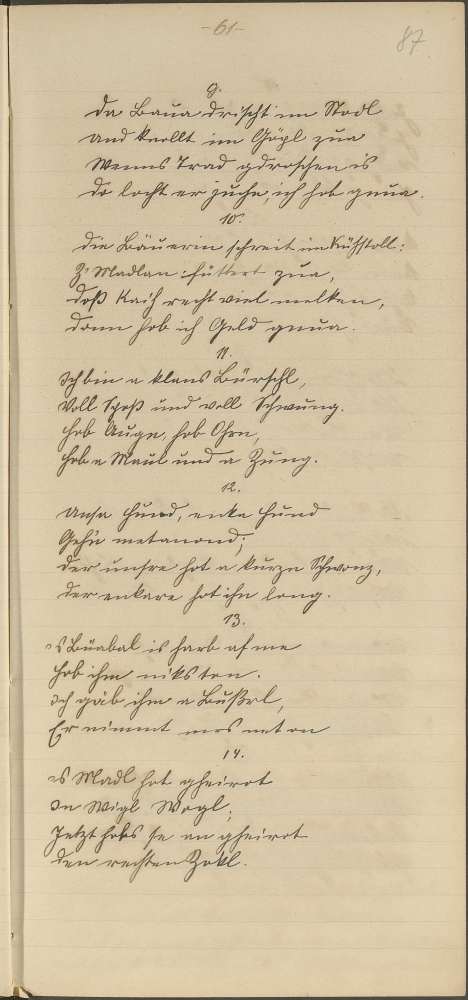 -61-
87
9.
Da Baua drischt im Stodl
and knollt im Göpl zua
Wenns Trad gdroschen is
Do locht er zuche, ich hob gnua.
10.
Die Bäuerin schreit im Kühstoll:
Z' Madlan: füttert zua,
doß Kaih recht viel melken,
dann hob ich Geld gnua.
11.
Ich bin a klans Bürschl,
Voll Spoß und voll Schwung.
Hob Auge, hob Ohrn,
Hob a Maul und a Zung.
12.
Unsa Hund, enka Hund
Gehn metanond;
Der unsre hot a kurzn Schwonz,
Der enkare hot ihn long.
13.
's Büabal is harb af me
Hob ihm niks ton.
Ich gäb ihm a Bußrl,
Er nimmt mas net on
14.
's Madl hot gheirot
Den Wigl Wogl;
Jetzt hobs se an gheirot
Den rechten Zokl.